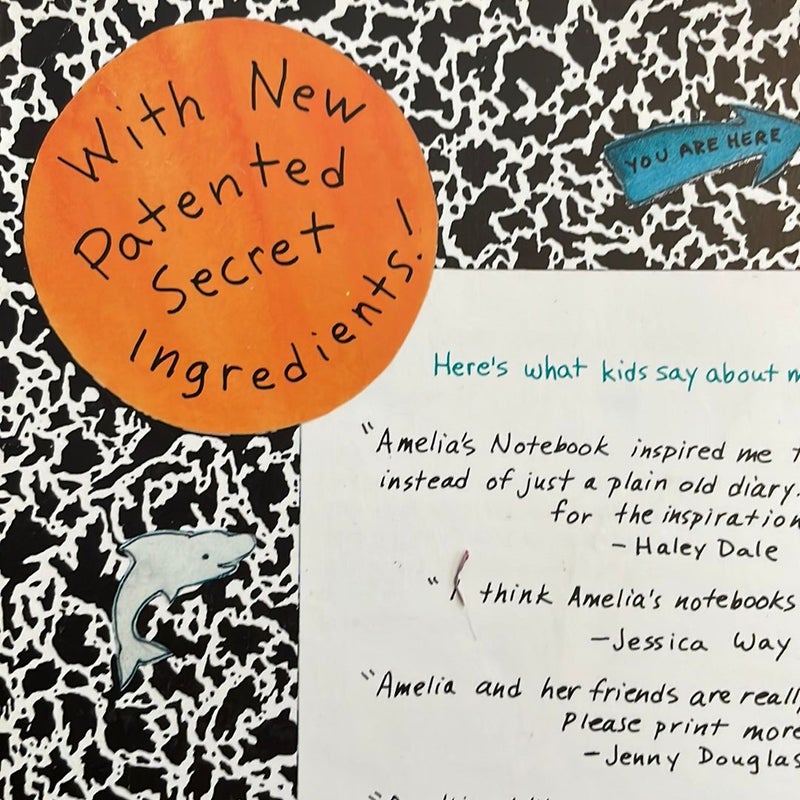 With New
Patented
Secret
Ingredients!
YOU ARE HERE
Here's what kids say about
"Amelia's Notebook inspired me
instead of just a plain old diary.
for the inspiration
- Haley Dale
"I think Amelia's notebooks
- Jessica Way
"Amelia and her friends are
Please print more
- Jenny Douglas